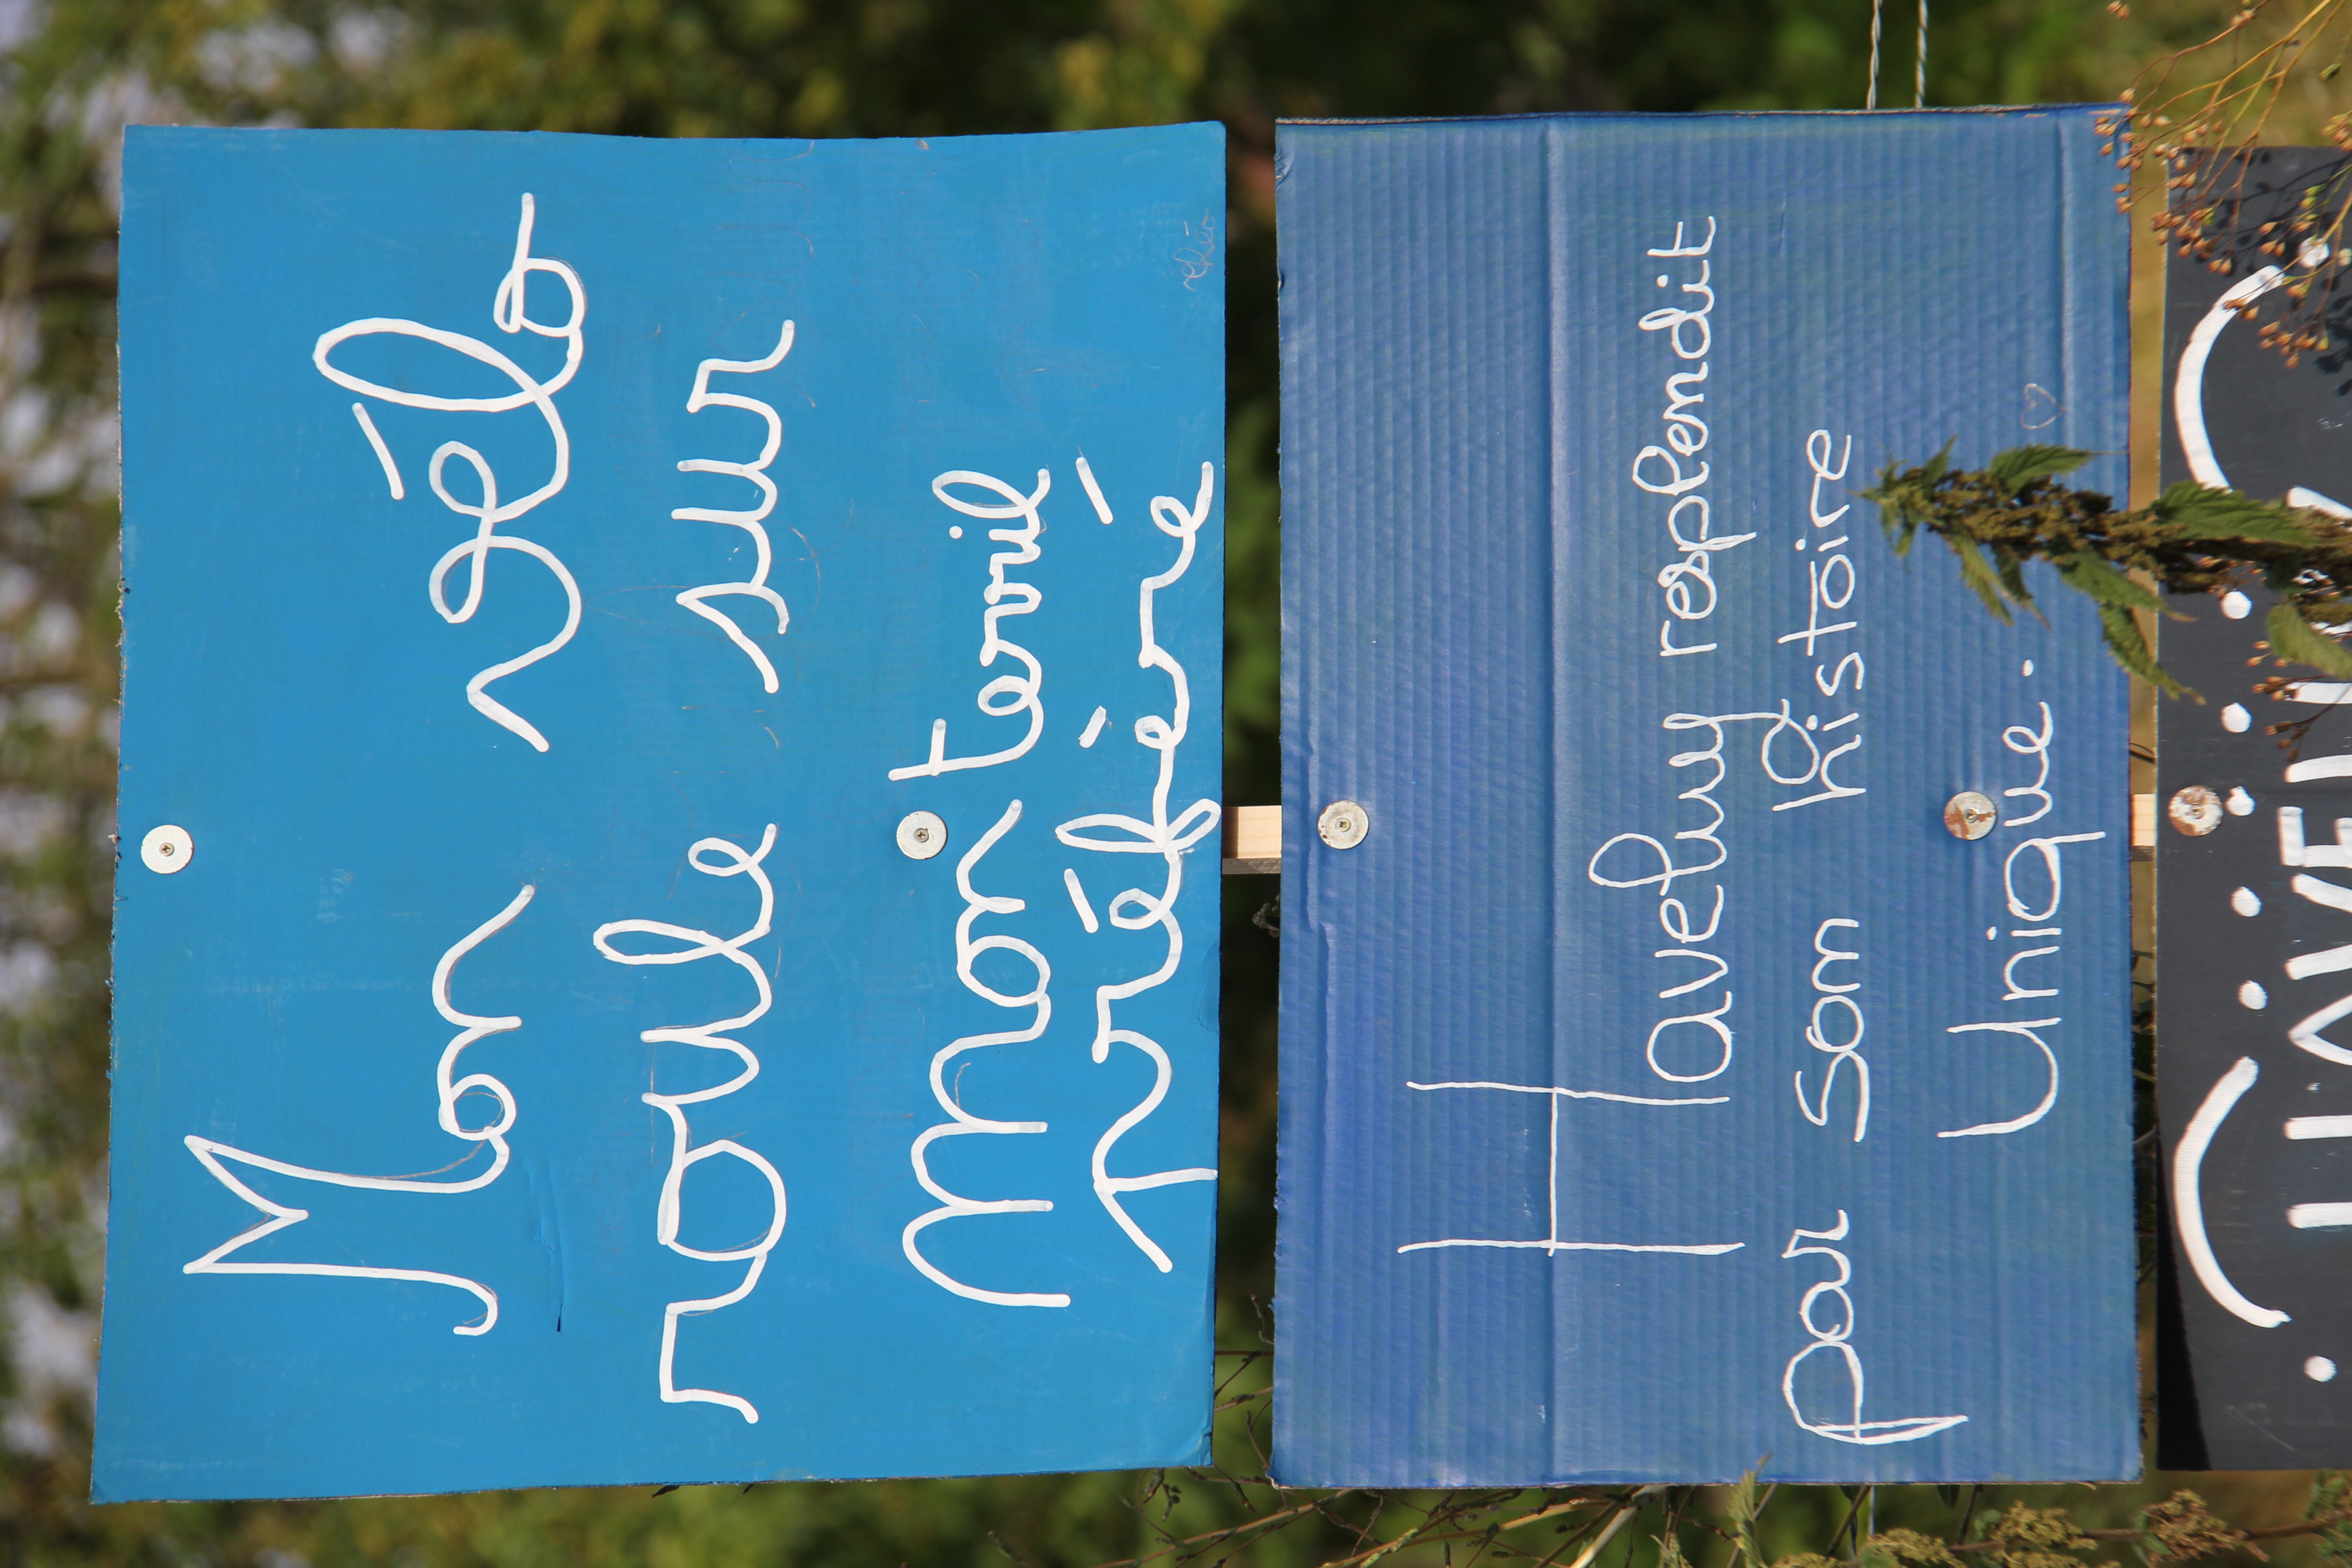 Mon vélo
roule sur
mon terril
préféré
Haveluy resplendit
par son histoire
Unique.